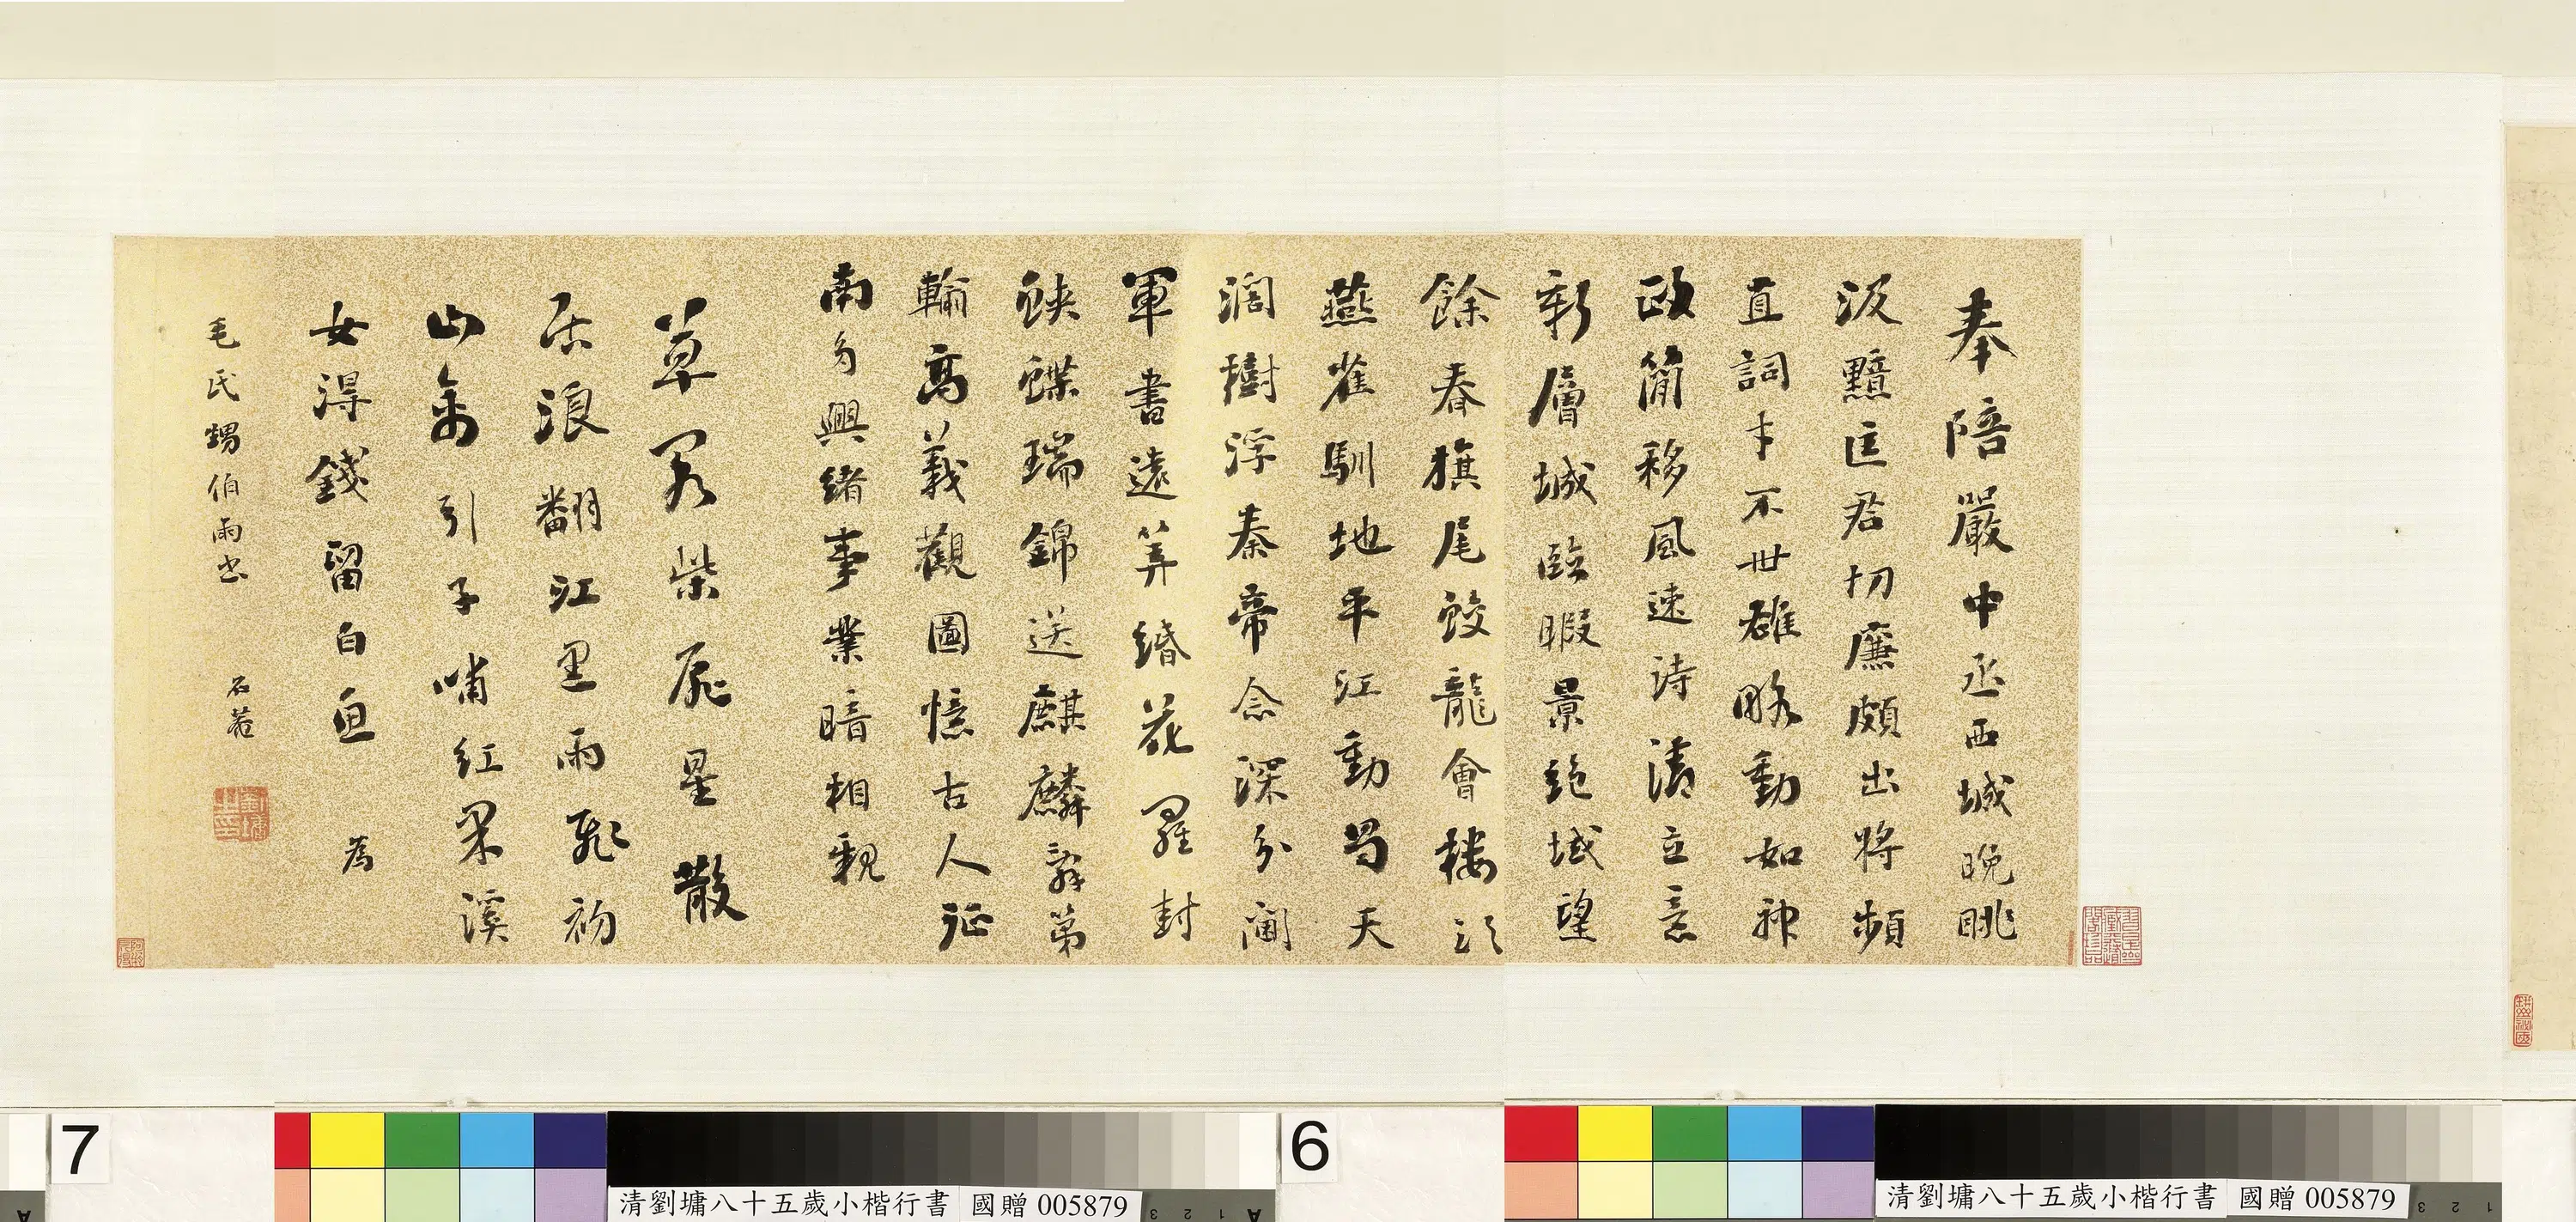 奉陪嚴中丞西城晚眺
汲黯匡君切廉頗出將頻
直詞才不世雄略動如神
政簡移風速詩清立意
新層城臨暇景絕域望
餘春旗尾蛟龍會樓頭
燕雀馴地平江動蜀天
濶樹浮秦帝念深分閫
軍書遠筭緡花羅封
蛺蝶瑞錦送麒麟辭第
輸高義觀圖憶古人征
南多興緒事業暗相親
草閣柴扉星散
居浪翻江黑雨飛初
山禽引子哺紅果溪
女得錢留白魚 為
毛氏甥伯雨書 石菴
劉墉之印
7
6
清劉墉八十五歲小楷行書 國贈 005879
清劉墉八十五歲小楷行書 國贈 005879